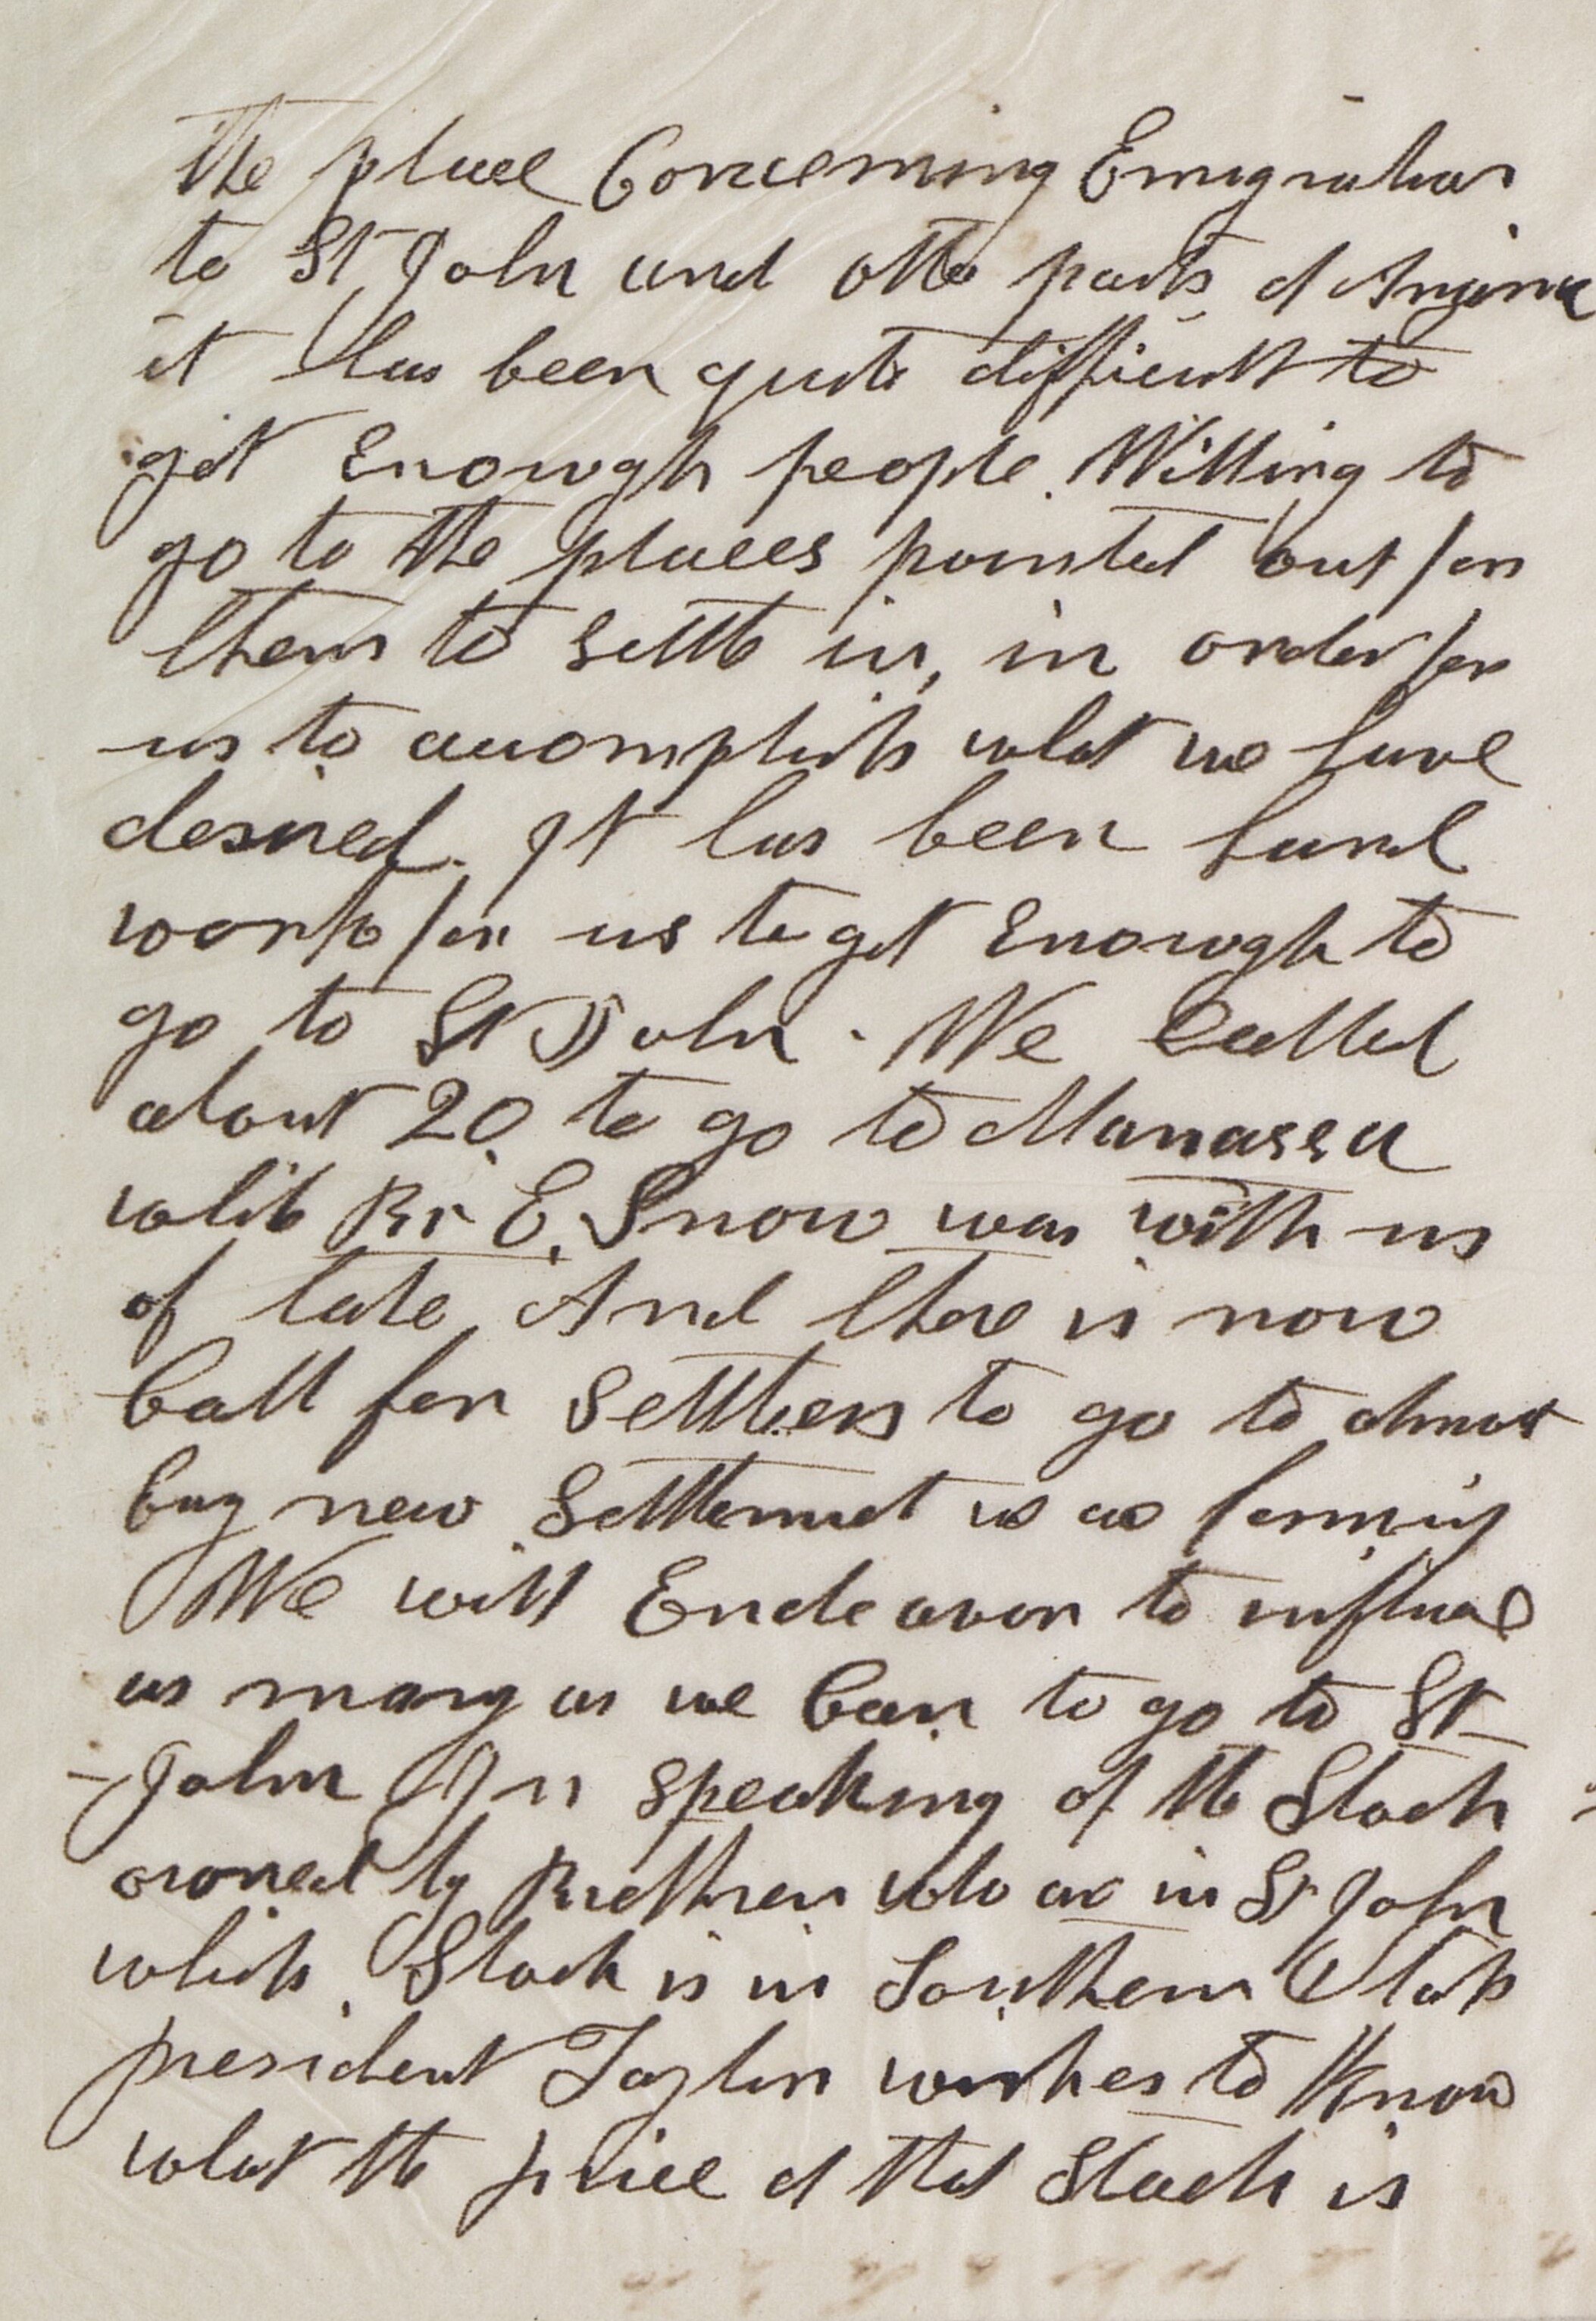 the place Concerning Emigration
to St John and other parts of Arizona
it has been quite difficult to
get Enough people Willing to
go to the places pointed out for
them to settle in, in order for
us to accomplish what we have
desired. It has been hard
work for us to get Enough to
go to St John. We Called
about 20 to go to Manassa
while Br E. Snow was with us
of late, And there is now
Call for Settlers to go to almost
Evry new Settlement we are forming
We will Endeavor to influence
as many as we Can to go to St
John In speaking of the Stock
owned by Brethren who are in St John
which Stock is in Southern Utah
president Taylor wishes to Know
what the price of that Stock is